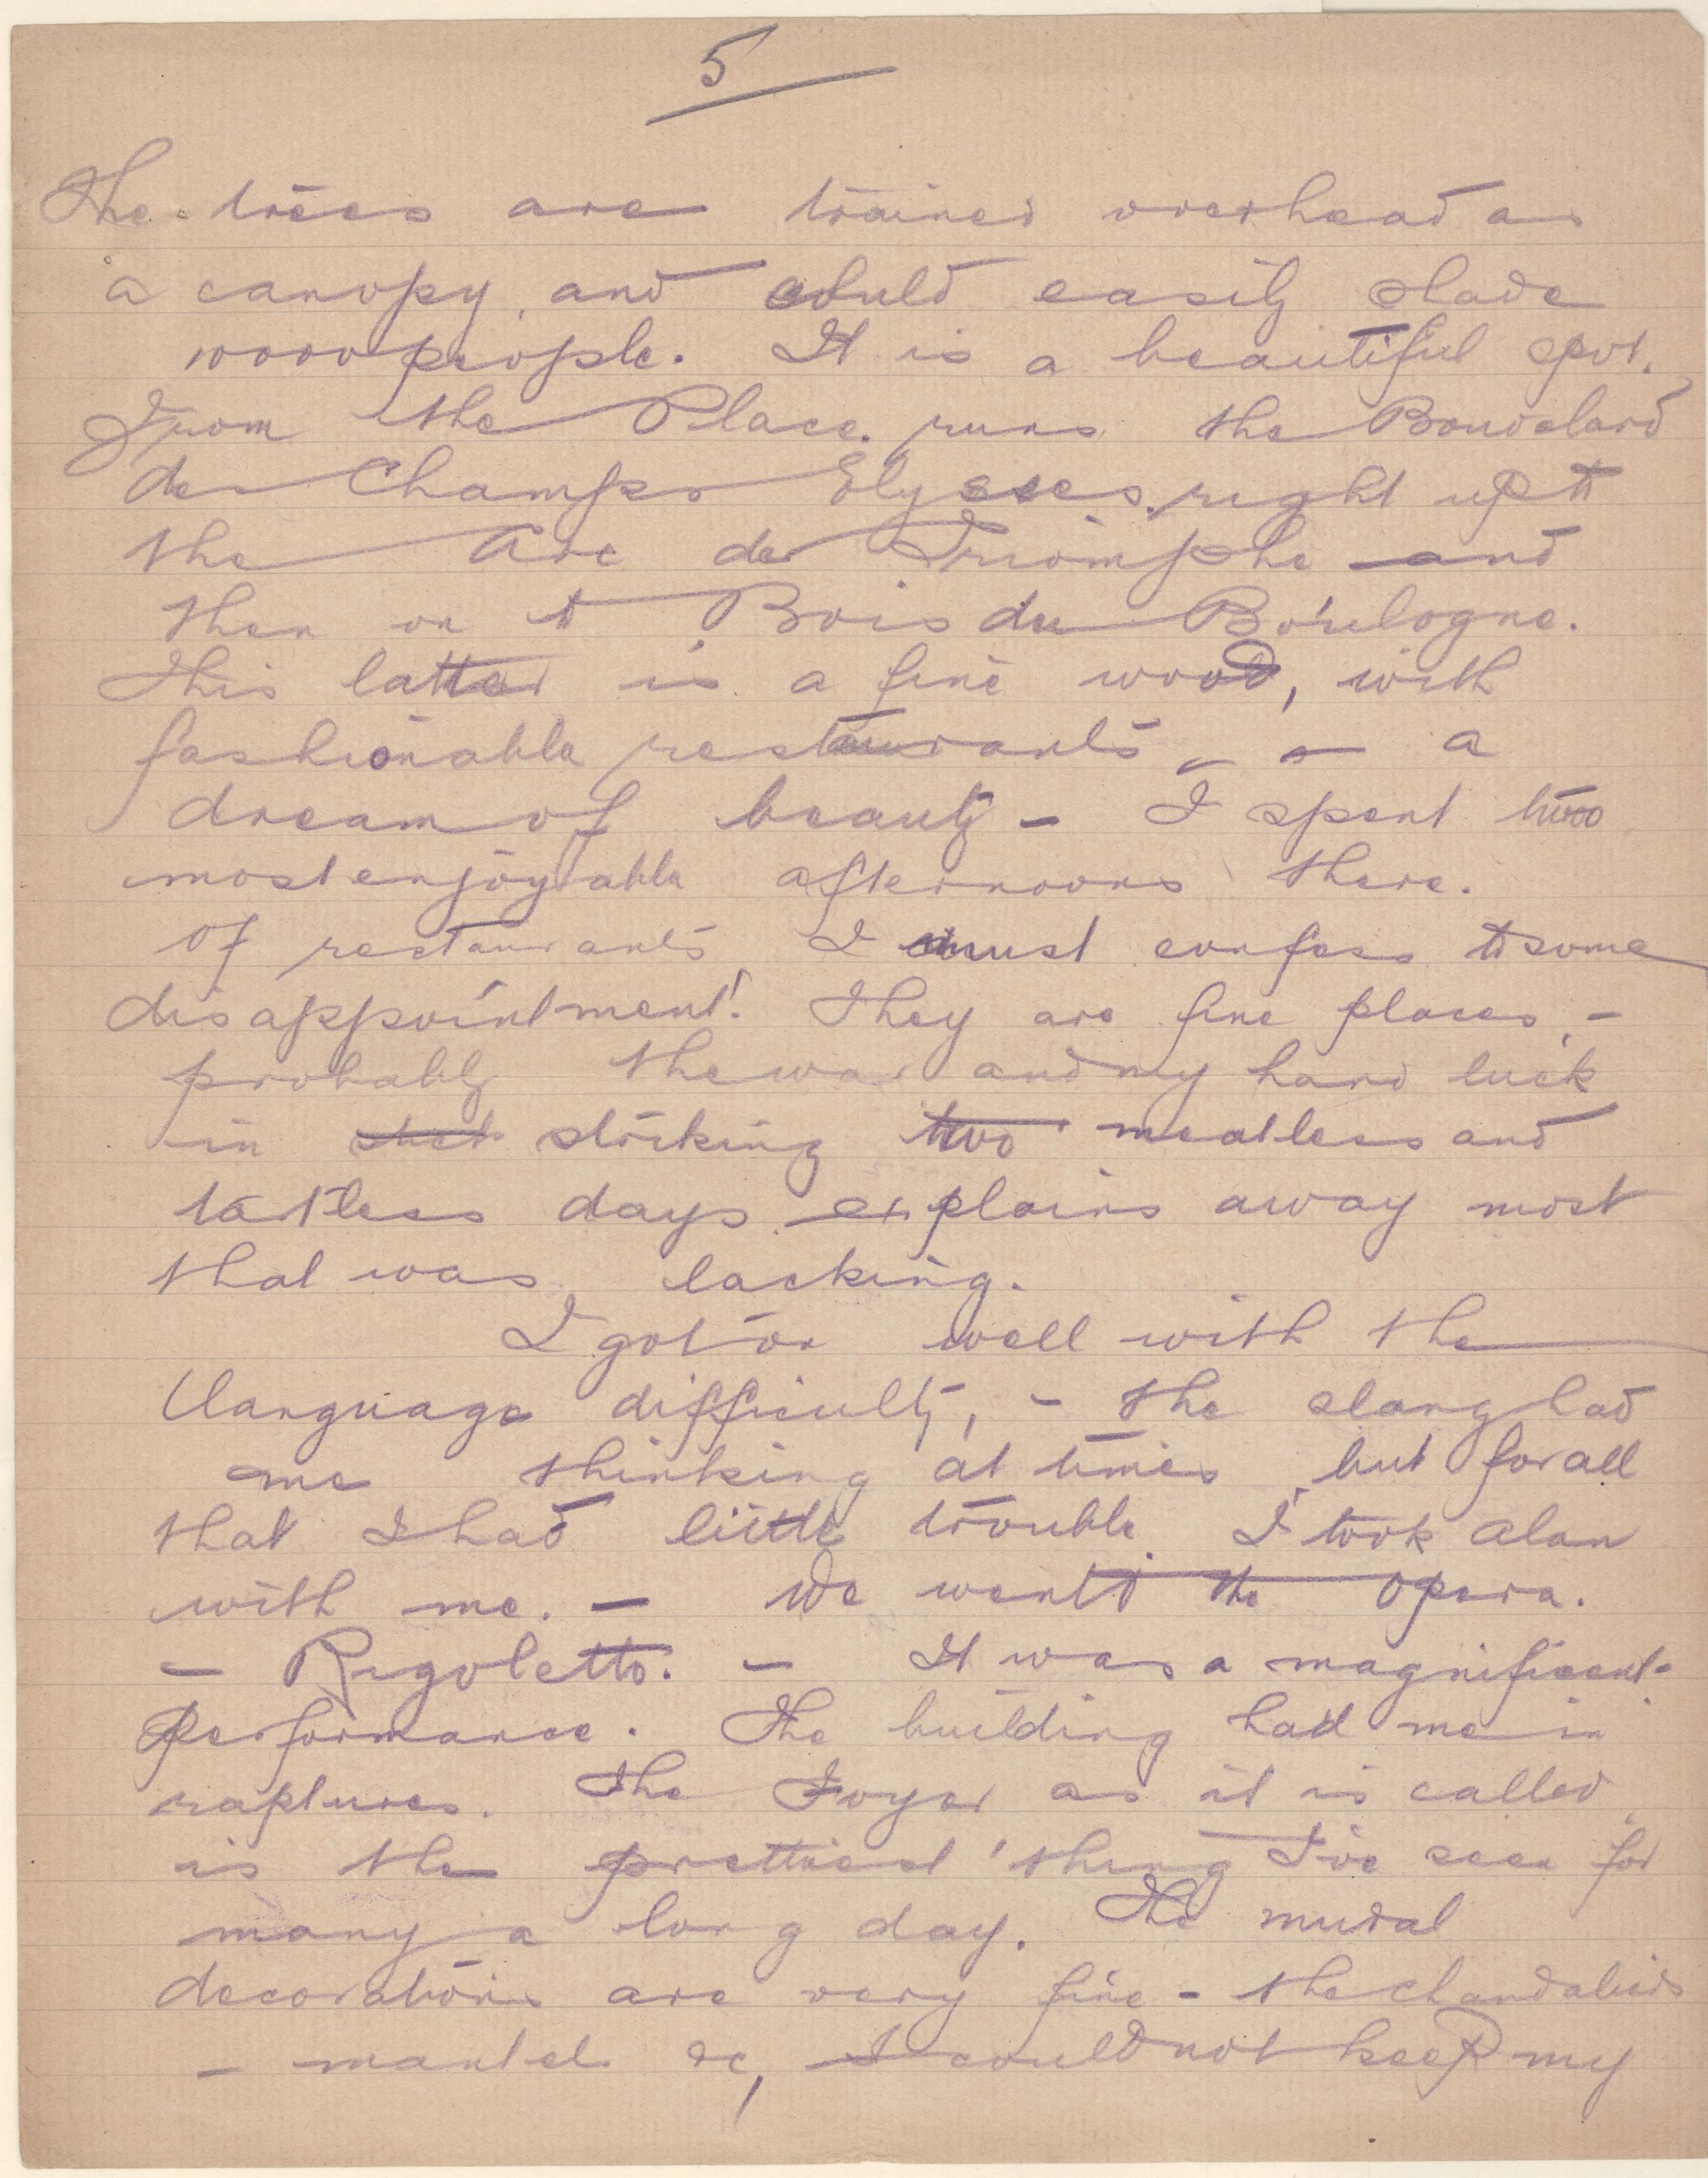 5
The trees are trained overhead as
a canopy, and could easily shade
10000 people. It is a beautiful spot.
From the Place runs the Bouvelard
des Champs Elysees right up to
the Arc de Triomphe and
then on to Bois du Boulogne.
This latter is a fine wood, with
fashionable restaurants, - a
dream of beauty - I spent two
most enjoyable afternoons there.
Of restaurants I must confess to some
disappointment! They are fine places, -
probably the war and my hard luck
in striking two meatless and
tartless days explains away most
that was lacking.
I got on well with the
language difficulty, - the slang had
me thinking at times but for all
that I had little trouble. I took Alan
with me. - We went to the Opera.
- Rigoletto. - It was a magnificent
performance. The building had me in
raptures. The Foyer as it is called
is the prettiest thing I've seen for
many a long day. The mural
decorations are very fine - the chandaliers
- mantel &c, I could not keep my